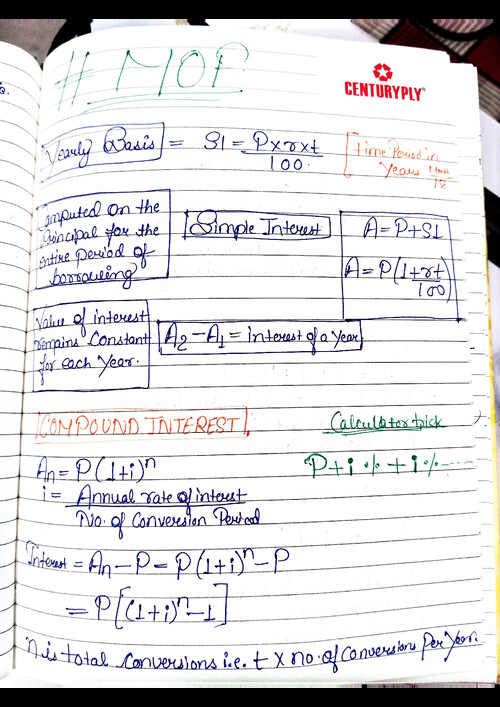 # MOF
CENTURYPLY®
Yearly Basis = SI = P×r×t / 100.
[Time Period in Years
12
Computed On the Principal for the entire Period of borrowing
Simple Interest
A = P+SI
A = P(1+rt/100)
Value of interest remains Constant for each Year.
A2 – A1 = interest of a Year
COMPOUND INTEREST
Calculator trick
An = P(1+i)^n
P+i%+i%-----
i = Annual rate of interest / No. of Conversion Period
Interest = An – P = P(1+i)^n – P
= P[(1+i)^n – 1]
n is total conversions i.e. t × no. of Conversions Per Year.